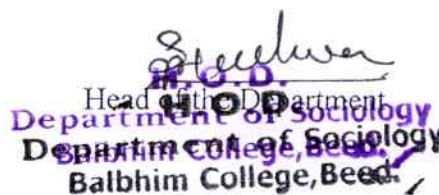 H.O.D.
Head of the Department
H O D
Department of Sociology
Department of Sociology
Balbhim College, Beed.
Balbhim College, Beed.